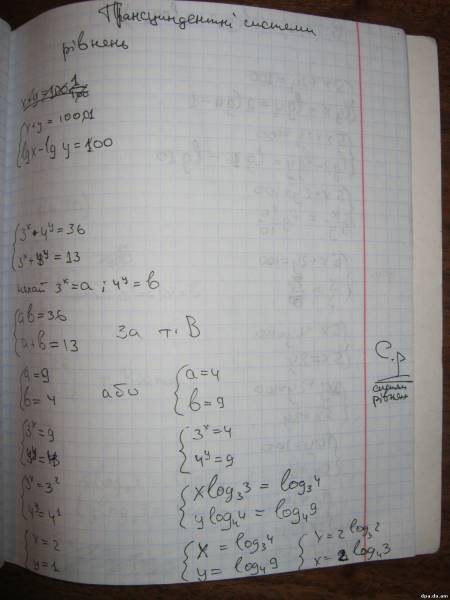 Трансциндентні системи
рівнень
x+y=100
{x+y = 100,01
lgx-lg y = 100
{3ˣ·4ʸ=36
3ˣ+4ʸ=13
нехай 3ˣ=a ; 4ʸ=b
{ab=36
a+b=13
За т. В
{a=9
b=4
або
{a=4
b=9
{3ˣ=9
4ʸ=4
{3ˣ=4
4ʸ=9
{3ˣ=3²
4ʸ=4¹
{xlog₃3 = log₃4
ylog₄4 = log₄9
{x=2
y=1
{x = log₃4
y = log₄9
{x=2log₃2
x=2log₄3
С.р
системи
рівнен
dpa.do.am